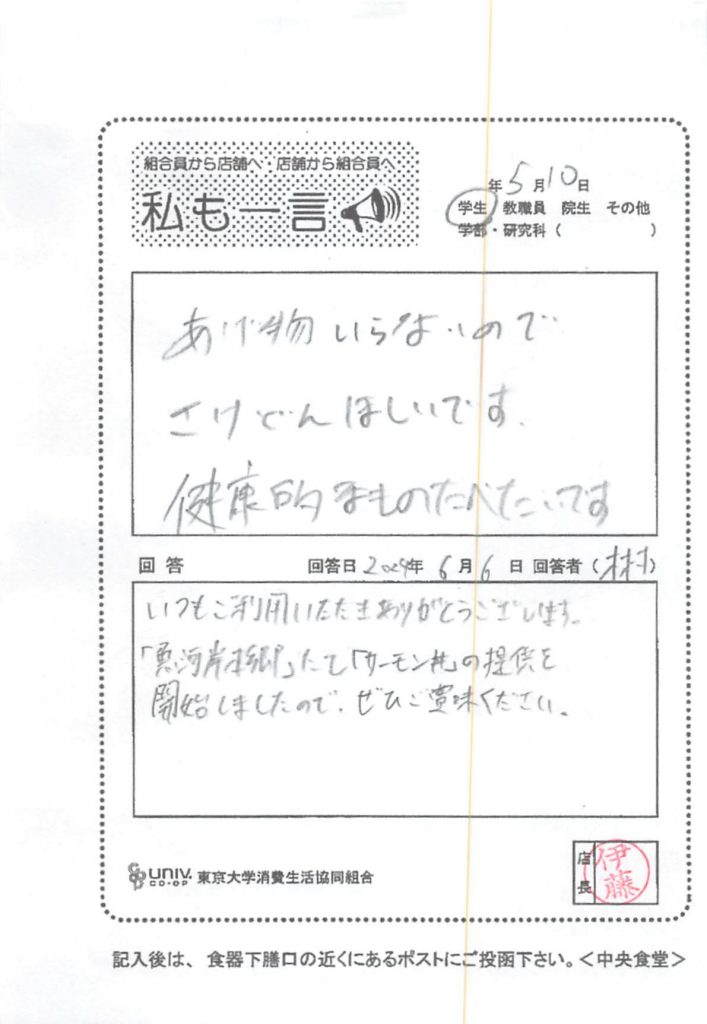 組合員から店舗へ・店舗から組合員へ
私も一言
年5月10日
学生 教職員 院生 その他
学部・研究科（ ）
あげ物いらないので
さけどんほしいです.
健康的なものたべたいです
回答 回答日 2024年 6月 6日 回答者（林）
いつもご利用いただきありがとうございます。
「魚河岸本郷」にて「サーモン丼」の提供を
開始しましたので、ぜひご賞味ください。
UNIV. CO-OP 東京大学消費生活協同組合
店長 伊藤
記入後は、食器下膳口の近くにあるポストにご投函下さい。＜中央食堂＞